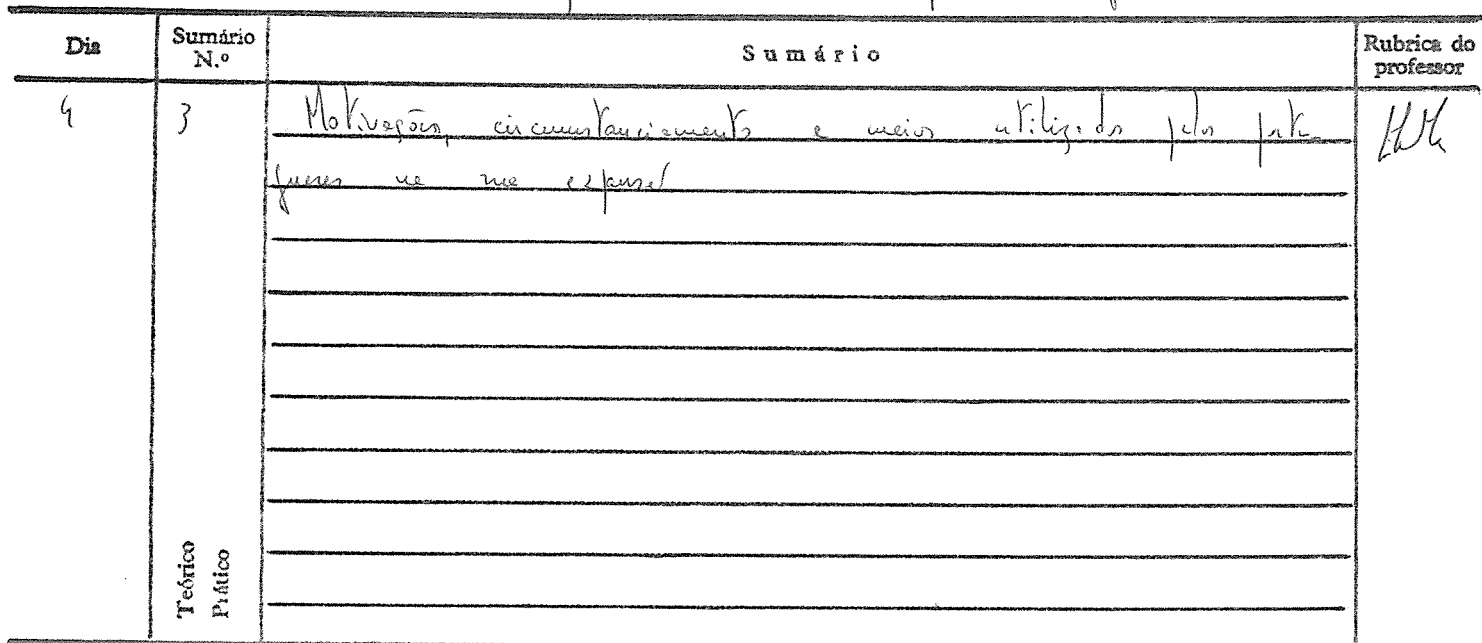 Dia Sumário N.º Sumário Rubrica do professor
4 3 Motivações, circunstanciamento e meios utilizados pelos portu
gueses na sua expansão
Teórico
Prático